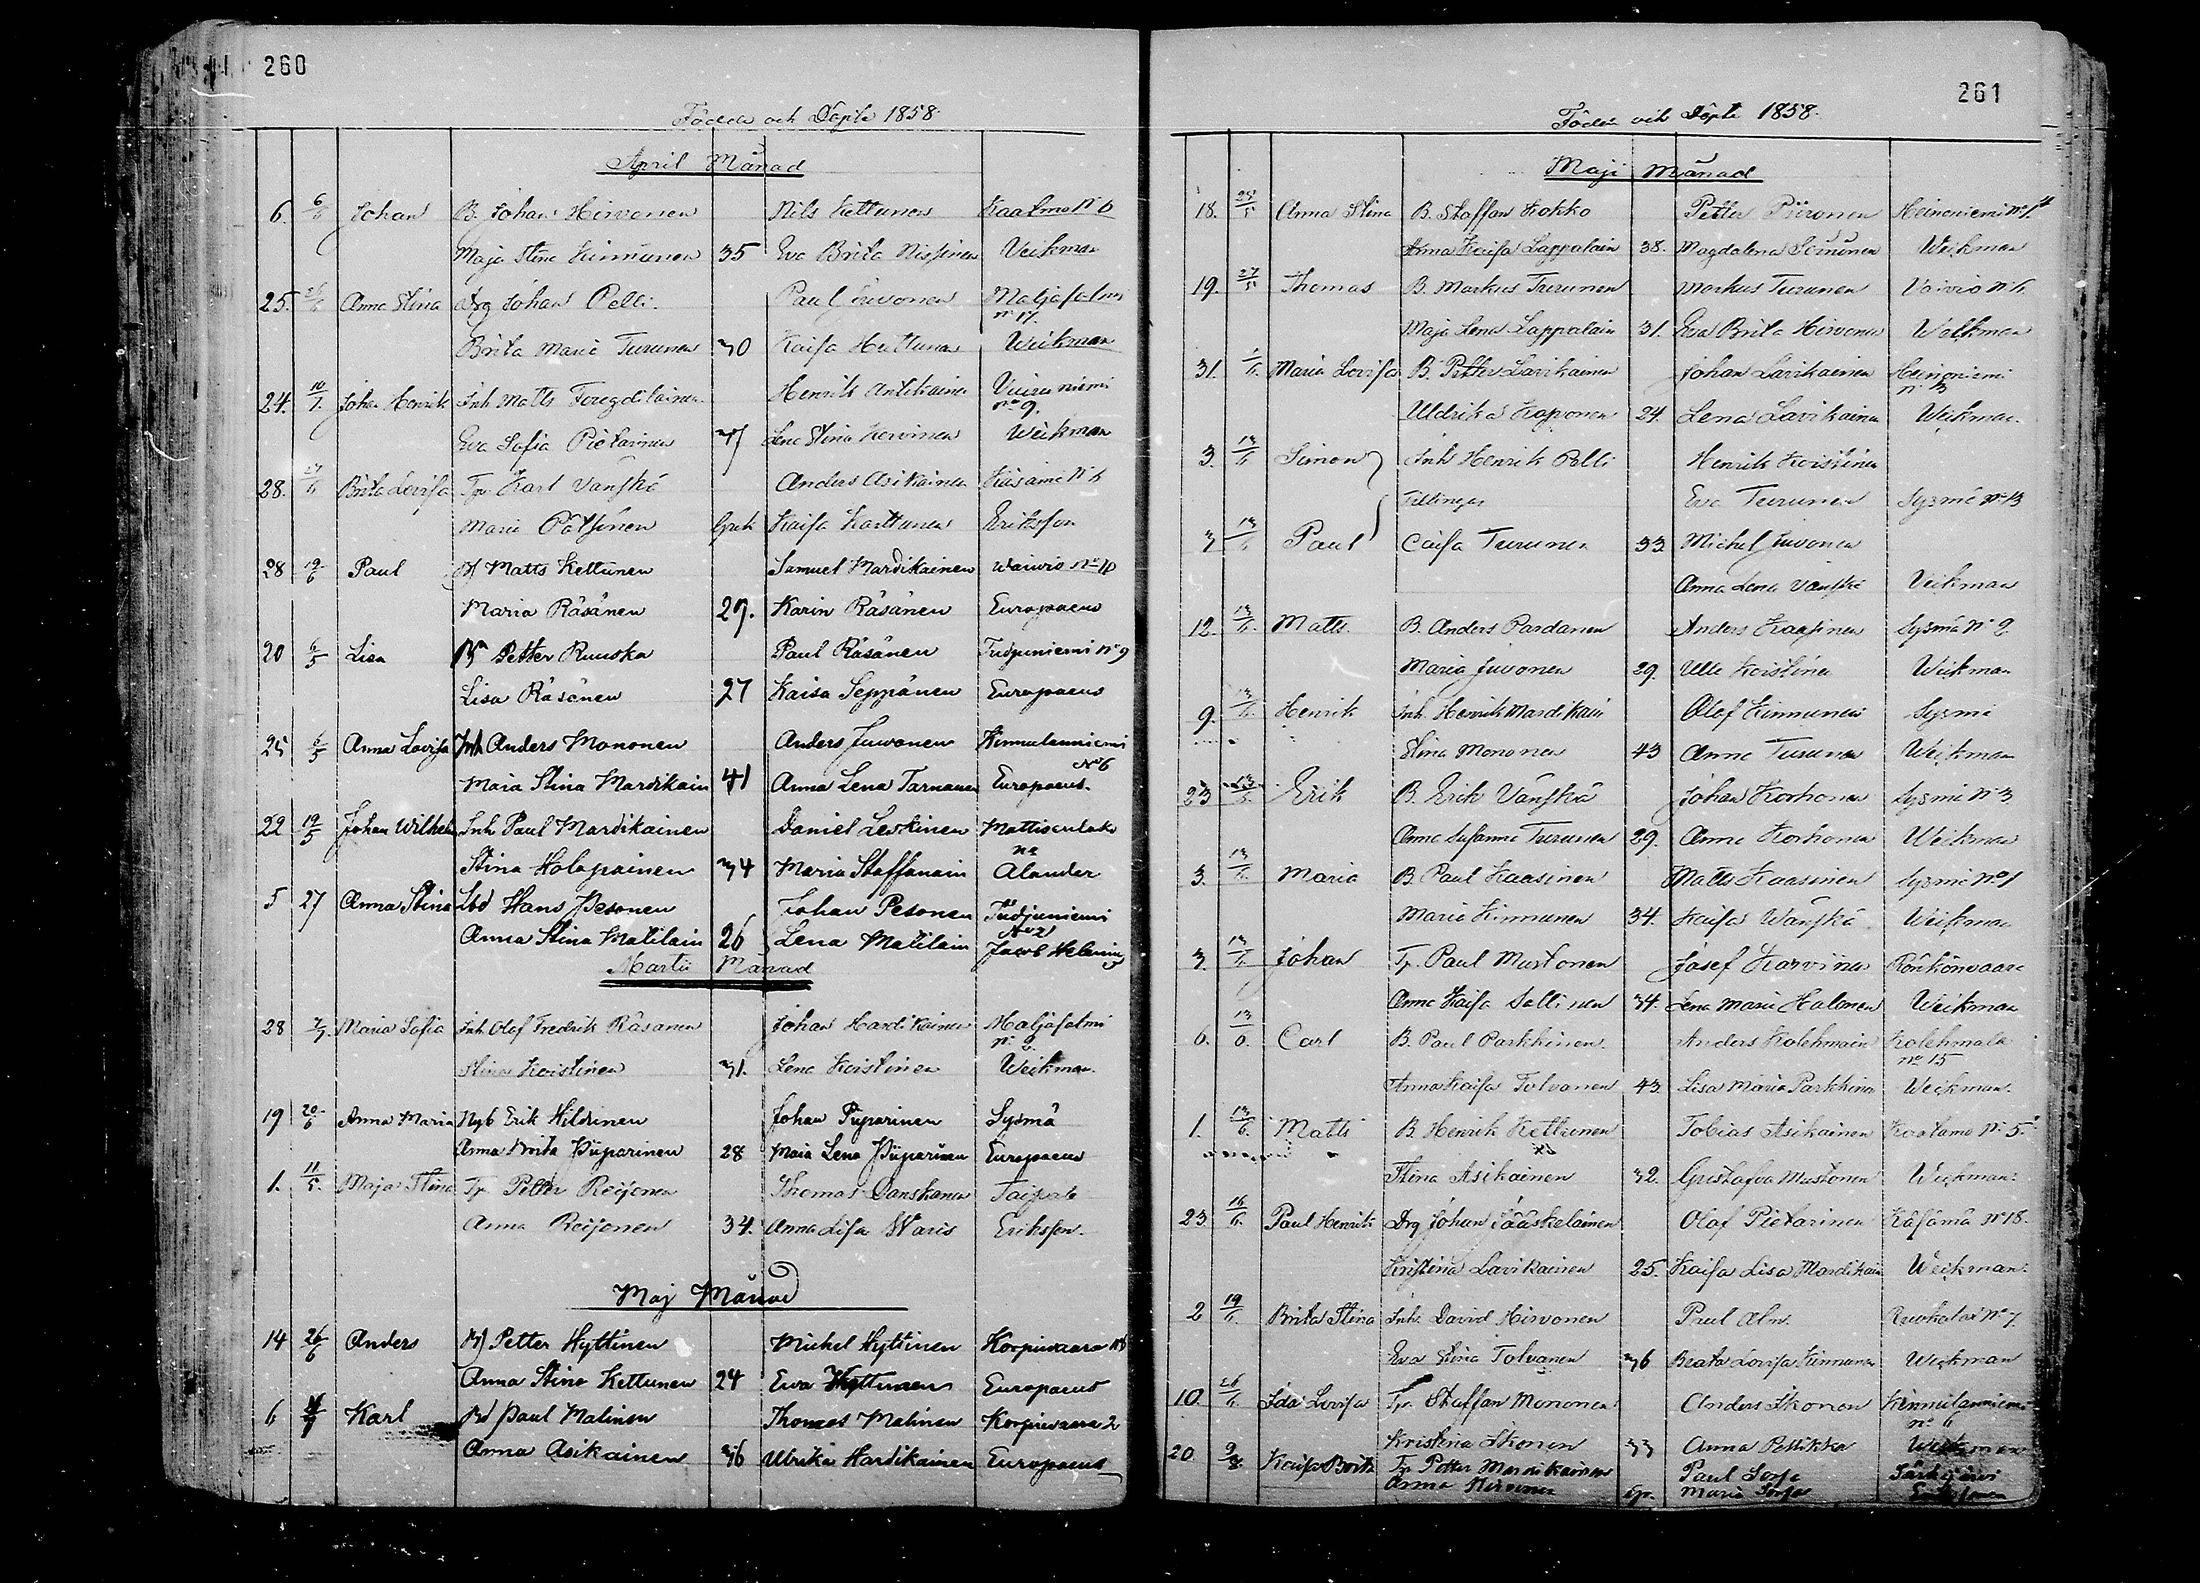 260
Födde och Döpte 1858.
April Månad
6. 6/6 Johan B. Johan Hirvonen Nils Kettunen Kaatamo N:o 6
Maja Stina Kinnunen 35 Eva Brita Nissinen Veikman
25. Anna Stina Drg Johan Pelli. Paul Juvonen Maljasalmi
n:o 17.
Brita Maria Turunen 30 Kaisa Huttunen Weikman
24. 10/7. Johan Henrik Inh Matts Henrik Antikainen
n:o 9.
Eva Sofia Pietarinen Lena Stina Kervinen Weikman
28. 27/6 Brita Lovisa Tp. Karl Vänskä Anders Asikainen Käsämä N:o 6
Maria Pätsönen Kaisa Karttunen Eriksson
28 19/6 Paul Bd Matts Kettunen Samuel Mardikainen Waivio N:o 10
Maria Räsänen 29. Karin Räsänen Europaeus
20 6/5 Lisa Bd Petter Ruuska Paul Räsänen Tudjuniemi N:o 9
Lisa Räsänen 27 Kaisa Seppänen Europaeus
25 6/5 Anna Lovisa Inh Anders Mononen Anders Juvonen Kinnulanniemi
N:o 6
Maia Stina Mardikain 41 Anna Lena Tarnanen Europaeus.
22 19/5 Johan Wilhelm Inh Paul Mardikainen Daniel Leskinen
Stina Holapainen 34 Maria Staffanain Alander
5 27 Anna Stina Lbd Hans Pesonen Johan Pesonen Tudjuniemi
N:o 2
Anna Stina Matilain 26 Lena Matilain Jacob Helenius
Martii Månad
28 7/7. Maria Sofia Inh Olof Fredrik Räsanen Johan Hardikainen Maljasalmi
n:o 2.
Stina Koistinen 31. Lena Koistinen Weikman.
19 20/6 Anna Maria Nyb Erik Hildinen Johan Piiparinen Sysmä
Anna Brita Piiparinen 28 Maia Lena Piiparinen Europaeus
1. 11/5. Maja Stina Tp. Petter Reijonen Thomas Danskanen Taipale
Anna Reijonen 34. Anna Lisa Waris Eriksson.
Maj Månad
14 26/6 Anders Bd Petter Hyttinen Michel Hyttinen Korpivaara N:o 6
Anna Stina Kettunen 24 Ewa Hyttinen Europaeus
6 Karl Bd Paul Malinen Thomas Malinen Korpivaara 2
Anna Asikainen 36 Ulrika Hardikainen Europaeus
261
Födde och Döpte 1858.
Maji Månad
18. 25/5 Anna Stina B. Staffan Kokko Petter Piironen Heinoniemi N:o
Anna Kaisa Lappalain 38. Magdalena Soininen Weikman
19. 27/5 Thomas B. Markus Turunen Markus Turunen Vaivio N:o
Maja Lena Lappalain 31. Eva Brita Hirvonen Weikman
31. 1/6. Maria Lovisa B. Petter Lavikainen Johan Lavikainen Heinoniemi
n:o 3
Uldrika Kaponen 24. Lena Lavikainen Weikman.
3. 13/6 Simon Inh Henrik Pelli Henrik Koistinen
Tillingar Eva Turunen Sysmä N:o 13
3 13/6 Paul Caisa Turunen 33. Michel Juvonen
Anna Lena Vänskä Veikman
12. 13/6. Matts. B. Anders Pardanen Anders Kaasinen Sysmä N:o 2.
Maria Juvonen 29. Ulla Koistinen Weikman
9. 13/6. Henrik Inh. Henrik Mardikain Olof Kinnunen Sysmä
Stina Mononen 43 Anna Turunen Weikman
23 13/6. Erik B. Erik Vänskä Johan Korhonen Sysmä N:o 3
Anna Susanna Turunen 29. Anna Korhonen Weikman
3. 13/6. Maria B. Paul Kaasinen Matts Kaasinen Sysmä N:o 1
Maria Kinnunen 34. Kaisa Wänskä Weikman
3. 13/6 Johan Tp. Paul Mustonen Josef Karvinen Rönkönvaara
Anna Kaisa Sallinen 34. Lena Maria Halonen Weikman
6. 13/6. Carl B. Paul Parkkinen. Anders Kolehmain Kolehmala
n:o 15
Anna Kaisa Tolvanen 43. Lisa Maria Parkkinen Weikman.
1. 13/6. Matts B. Henrik Kettunen Tobias Asikainen Kaatamo N:o 5.
Stina Asikainen 32. Gustafva Mustonen Weikman.
23 16/6. Paul Henrik Drg Johan Jääskeläinen Olof Pietarinen Käsämä N:o 18.
Kristina Lavikainen 25. Kaisa Lisa Mardikain Weikman.
2 19/6. Brita Stina Inh. David Hirvonen Paul Alm. N:o 7
Eva Stina Tolvanen 36 Beata Lovisa Kinnunen Weikman
10. 26/6. Ida Lovisa Tp. Staffan Mononen Anders Ikonen Kinnulanniemi
n:o 6
Kristina Ikonen 33 Anna Pettikka Weikman
20 9/8. Kaisa Brita Tp Petter Mardikainen Paul Sorsa Särkijärvi
Anna Hirvonen Maria Sorsa Eriksson